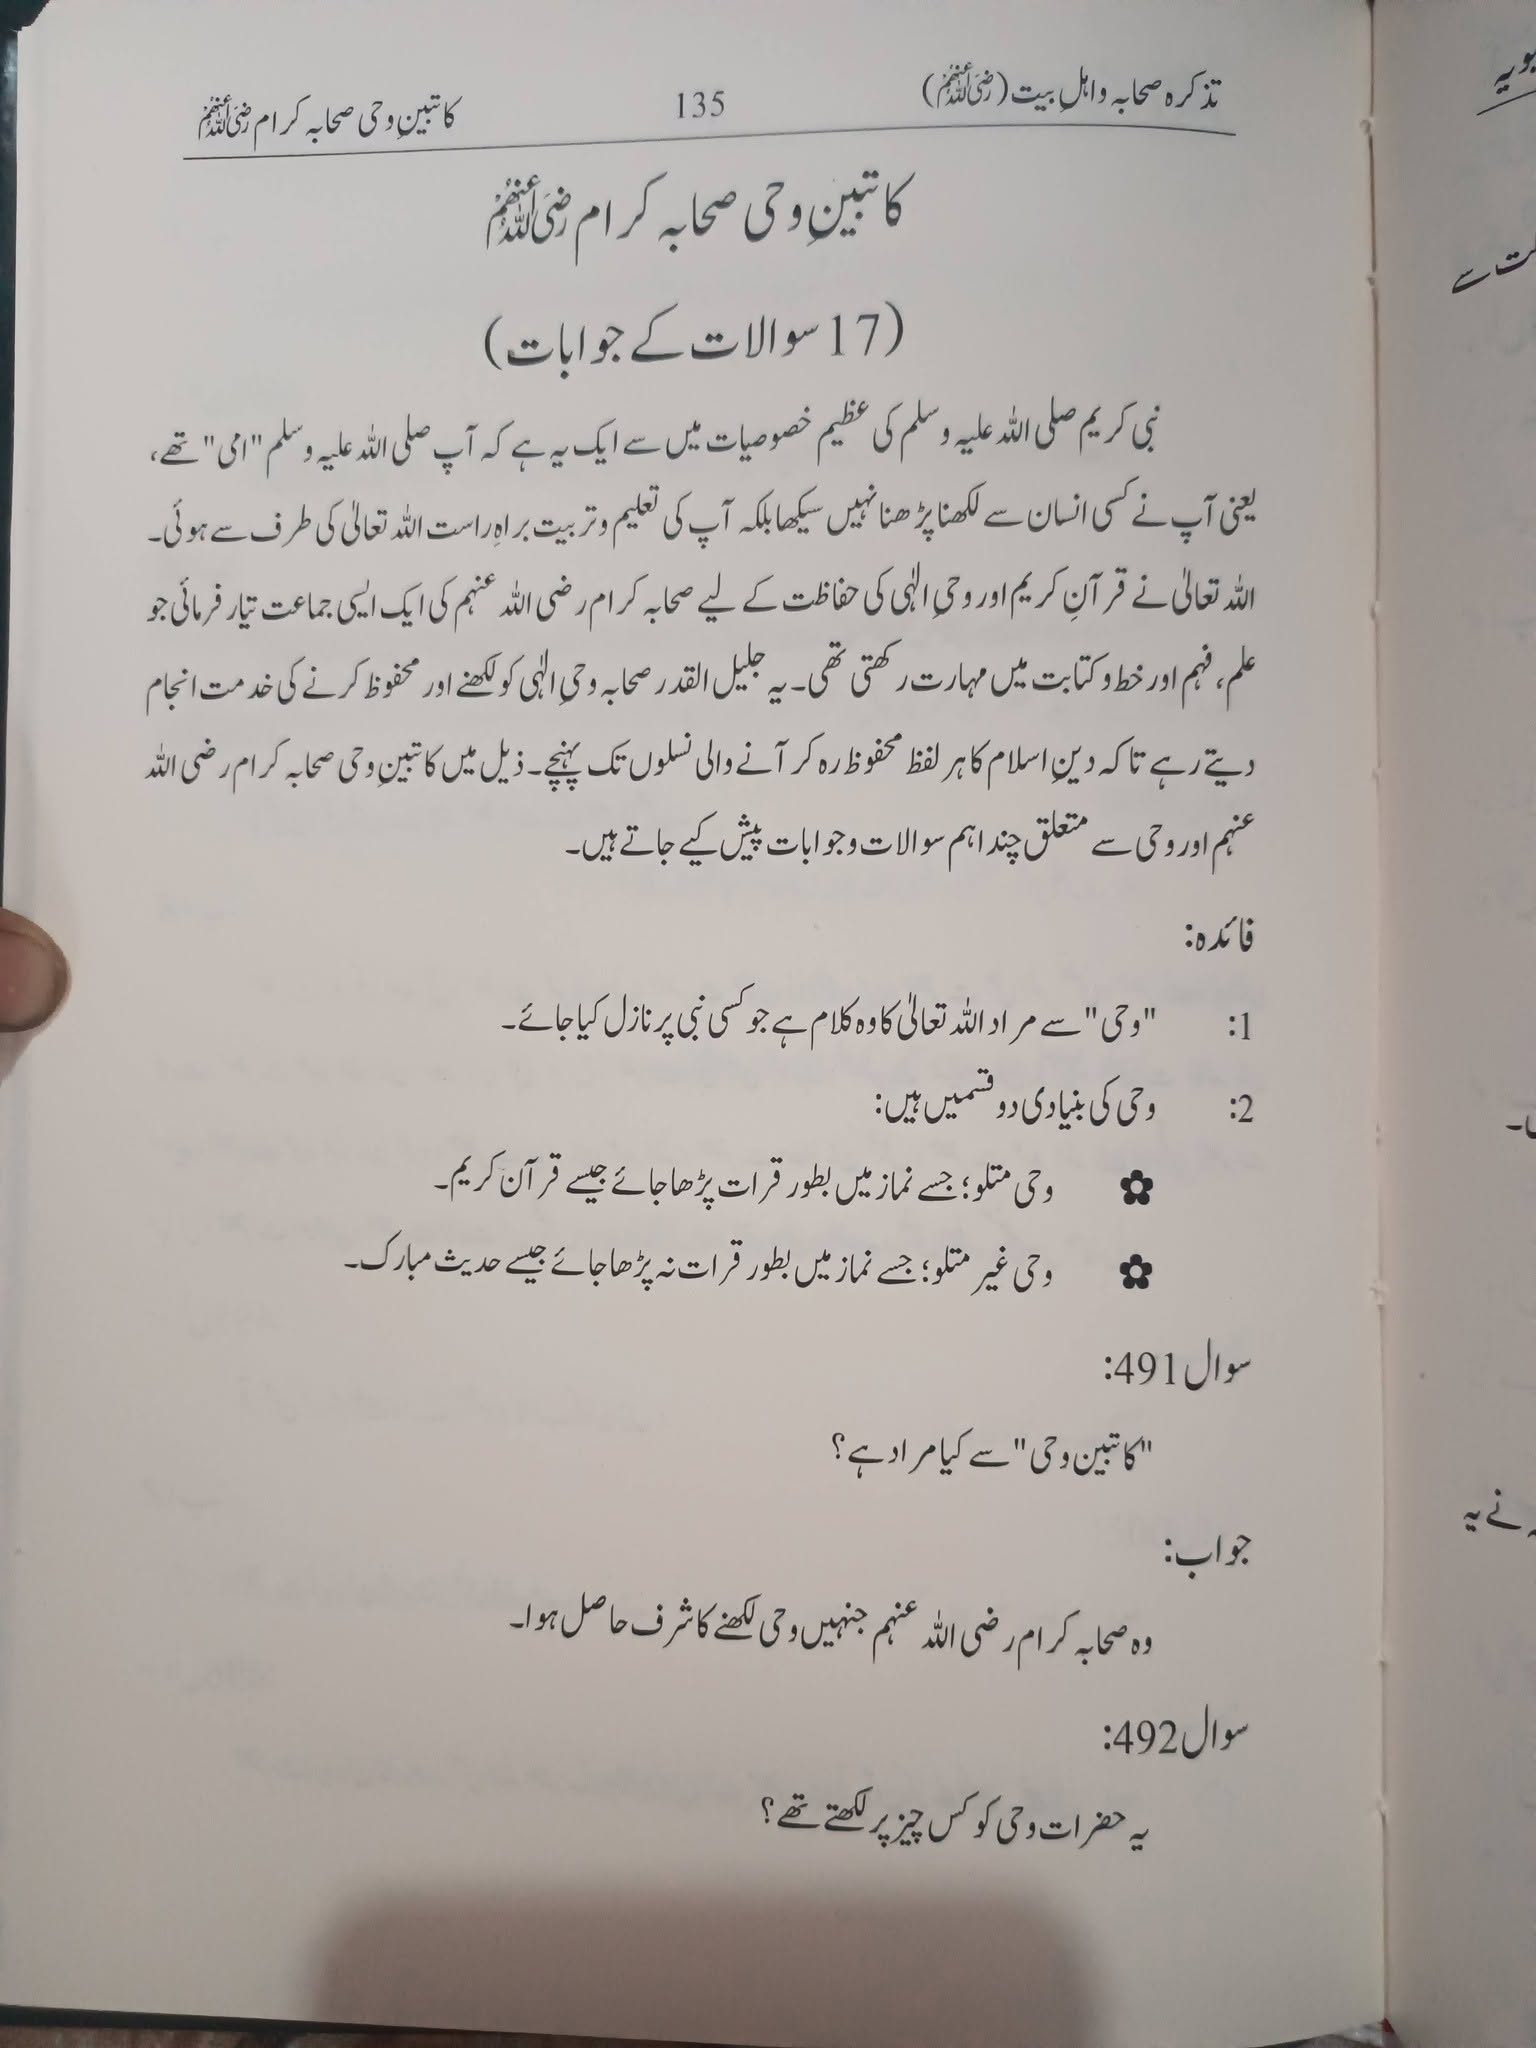 تذکرہ صحابہ واہلِ بیت (رضی اللہ عنہم) 135 کاتبینِ وحی صحابہ کرام رضی اللہ عنہم
کاتبینِ وحی صحابہ کرام رضی اللہ عنہم
(17 سوالات کے جوابات)
نبی کریم صلی اللہ علیہ وسلم کی عظیم خصوصیات میں سے ایک یہ ہے کہ آپ صلی اللہ علیہ وسلم "امی" تھے،
یعنی آپ نے کسی انسان سے لکھنا پڑھنا نہیں سیکھا بلکہ آپ کی تعلیم وتربیت براہِ راست اللہ تعالیٰ کی طرف سے ہوئی۔
اللہ تعالیٰ نے قرآنِ کریم اور وحیِ الٰہی کی حفاظت کے لیے صحابہ کرام رضی اللہ عنہم کی ایک ایسی جماعت تیار فرمائی جو
علم، فہم اور خط و کتابت میں مہارت رکھتی تھی۔ یہ جلیل القدر صحابہ وحیِ الٰہی کو لکھنے اور محفوظ کرنے کی خدمت انجام
دیتے رہے تاکہ دینِ اسلام کا ہر لفظ محفوظ رہ کر آنے والی نسلوں تک پہنچے۔ ذیل میں کاتبینِ وحی صحابہ کرام رضی اللہ
عنہم اور وحی سے متعلق چند اہم سوالات وجوابات پیش کیے جاتے ہیں۔
فائدہ:
1: "وحی" سے مراد اللہ تعالیٰ کا وہ کلام ہے جو کسی نبی پر نازل کیا جائے۔
2: وحی کی بنیادی دو قسمیں ہیں:
✿ وحی متلو؛ جسے نماز میں بطور قرات پڑھا جائے جیسے قرآن کریم۔
✿ وحی غیر متلو؛ جسے نماز میں بطور قرات نہ پڑھا جائے جیسے حدیث مبارک۔
سوال 491:
"کاتبین وحی" سے کیا مراد ہے؟
جواب:
وہ صحابہ کرام رضی اللہ عنہم جنہیں وحی لکھنے کا شرف حاصل ہوا۔
سوال 492:
یہ حضرات وحی کو کس چیز پر لکھتے تھے؟